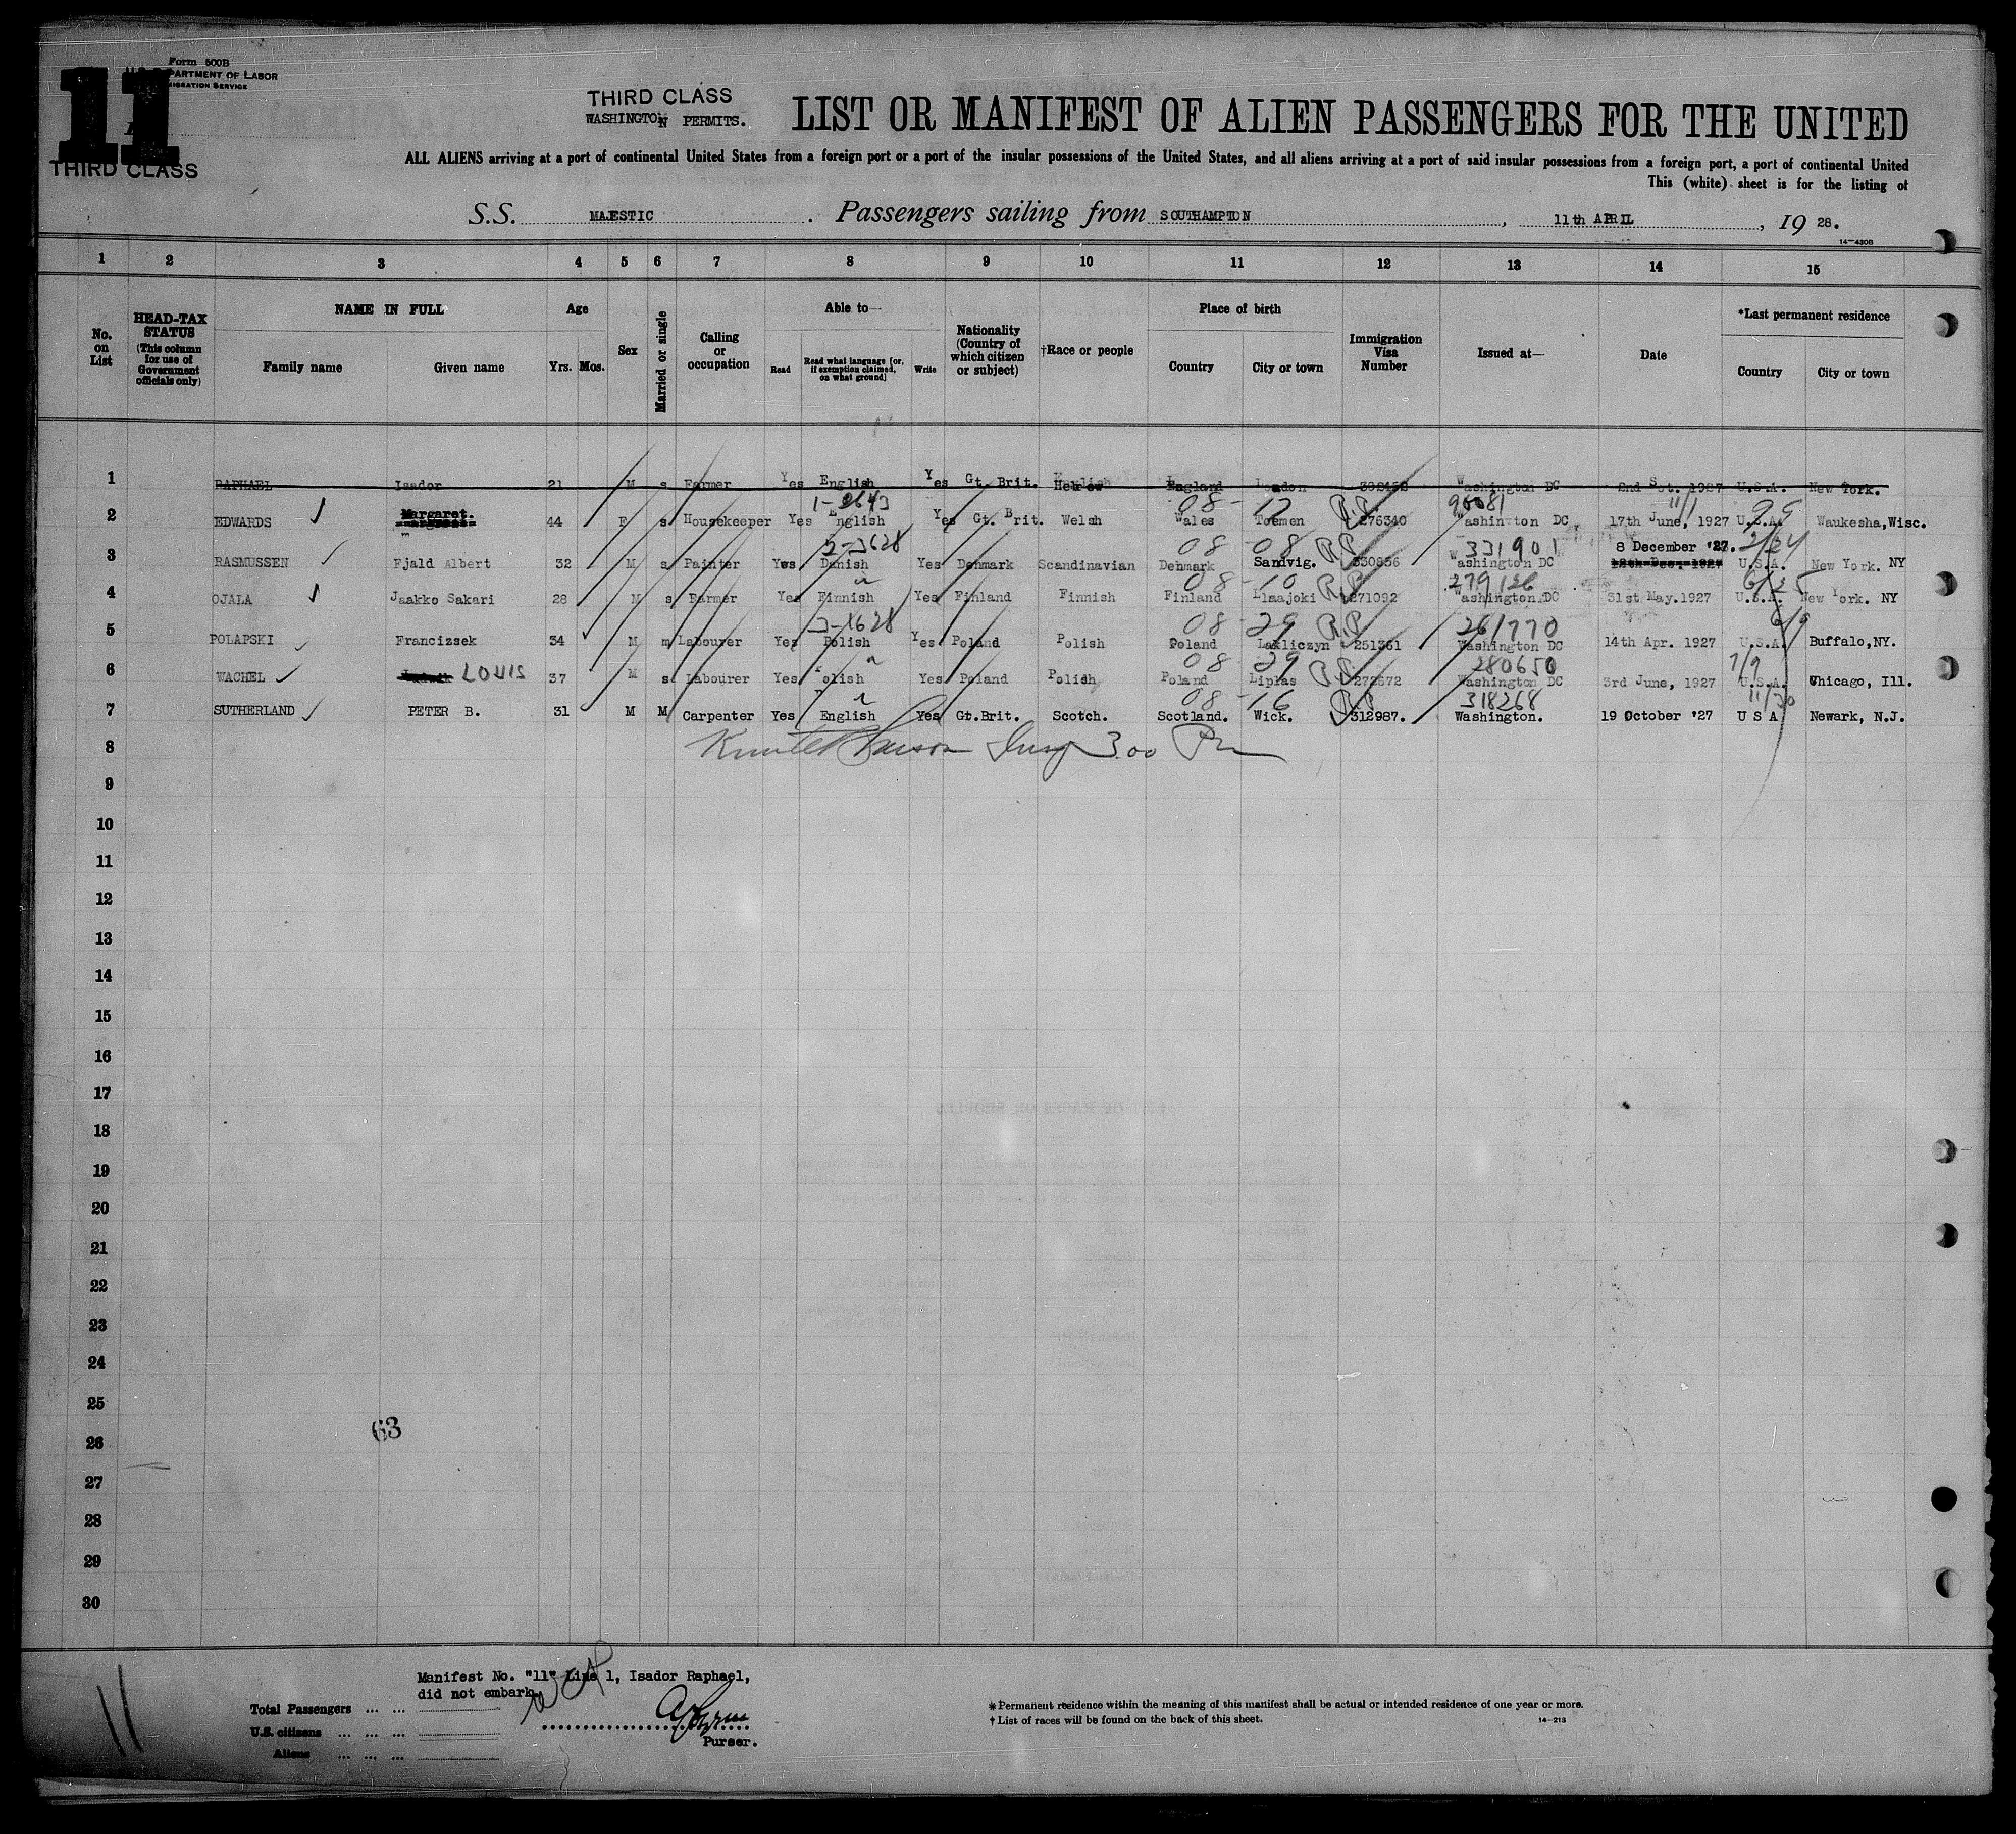 Form 500B
DEPARTMENT OF LABOR
IMMIGRATION SERVICE
11
THIRD CLASS
THIRD CLASS
WASHINGTON PERMITS.
LIST OR MANIFEST OF ALIEN PASSENGERS FOR THE UNITED
ALL ALIENS arriving at a port of continental United States from a foreign port or a port of the insular possessions of the United States, and all aliens arriving at a port of said insular possessions from a foreign port, a port of continental United
This (white) sheet is for the listing of
S.S. MAJESTIC . Passengers sailing from SOUTHAMPTON , 11th APRIL , 19 28.
14-430B
1 2 3 4 5 6 7 8 9 10 11 12 13 14 15
No. on List
HEAD-TAX STATUS (This column for use of Government officials only)
NAME IN FULL
Family name Given name
Age
Yrs. Mos.
Sex
Married or single
Calling or occupation
Able to—
Read Read what language [or, if exemption claimed, on what ground] Write
Nationality (Country of which citizen or subject)
†Race or people
Place of birth
Country City or town
Immigration Visa Number
Issued at—
Date
*Last permanent residence
Country City or town
1 RAPHAEL Isador 21 M s Farmer Yes English Yes Gt. Brit. England London Washington DC 1927 U.S.A. New York.
1-2643 08-17 R.P. 90081 11/1
2 EDWARDS Margaret. 44 F s Housekeeper Yes English Yes Gt. Brit. Welsh Wales Toemen 276340 Washington DC, 17th June, 1927 U.S.A. Waukesha, Wisc.
3-3628 08-08 R.P. 331901 8 December '27. 2/24
3 RASMUSSEN Fjald Albert 32 M s Painter Yes Danish Yes Denmark Scandinavian Denmark Sandvig. 330856 Washington DC U.S.A. New York. NY
08-10 R.P. 279126 6/25
4 OJALA Jaakko Sakari 28 M s Farmer Yes Finnish Yes Finland Finnish Finland 271092 Washington.DC 31st May.1927 U.S.A. New York. NY
3-1628 08-29 R.P. 261770 6/9
5 POLAPSKI Francizsek 34 M m Labourer Yes Polish Yes Poland Polish Poland Lakliczyn 251361 Washington DC 14th Apr. 1927 U.S.A. Buffalo,NY.
08-29 R.P. 280650 7/9
6 WACHEL LOUIS 37 M s Labourer Yes Polish Yes Poland Polidh Poland Liplas 272572 Washington DC 3rd June, 1927 U.S.A. Chicago, Ill.
08-16 R.P. 318268 11/30
7 SUTHERLAND PETER B. 31 M M Carpenter Yes English Yes Gt.Brit. Scotch. Scotland. Wick. 312987. Washington. 19 October '27 U S A Newark, N.J.
8 3.00
9
10
11
12
13
14
15
16
17
18
19
20
21
22
23
24
25
63
26
27
28
29
30
Manifest No. "11" Line 1, Isador Raphael,
did not embark.
Total Passengers ... ...
U.S. citizens ... ... ...
Aliens ... ... ...
Purser.
11
*Permanent residence within the meaning of this manifest shall be actual or intended residence of one year or more.
†List of races will be found on the back of this sheet.
14-213